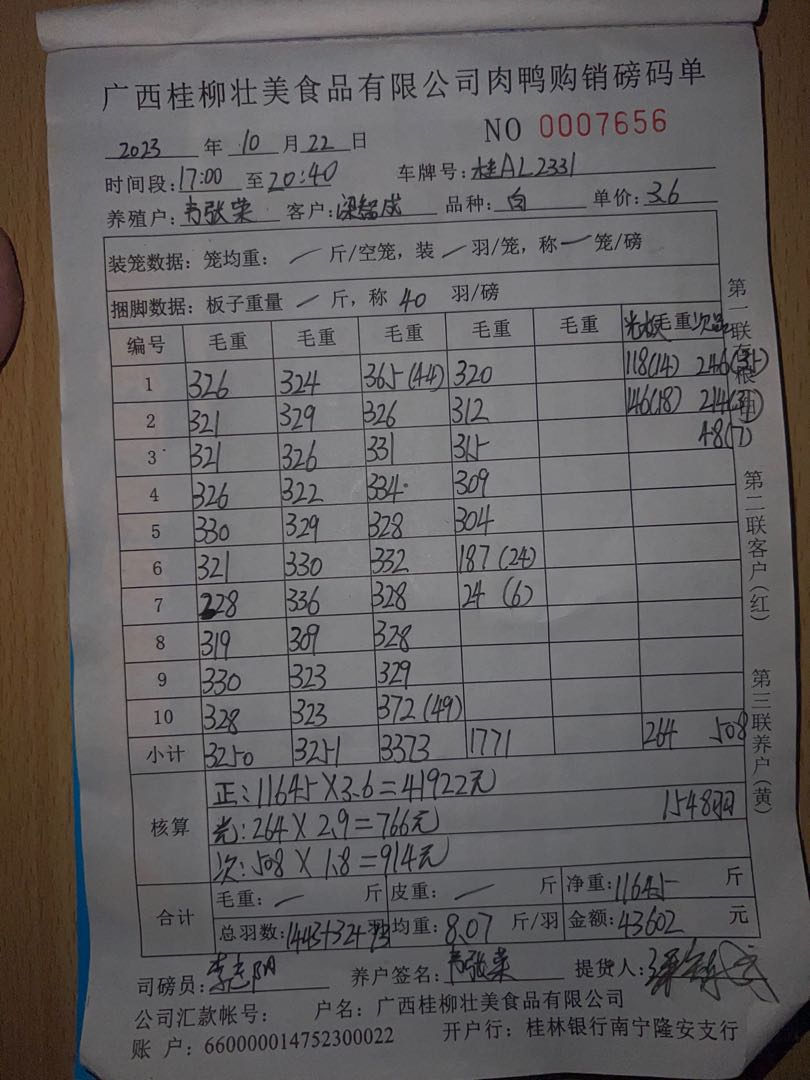 广西桂柳壮美食品有限公司肉鸭购销磅码单
NO 0007656
2023 年 10 月 22 日
时间段:17:00 至 20:40 车牌号:桂AL2331
养殖户:韦张荣 客户:梁智成 品种:白 单价:3.6
装笼数据:笼均重: — 斤/空笼,装 — 羽/笼,称 — 笼/磅
捆脚数据:板子重量 — 斤,称 40 羽/磅
编号 毛重 毛重 毛重 毛重 毛重 毛重
1 326 324 365(44) 320 118(14) 246(35)
2 321 329 326 312 146(18) 214(31)
3 321 326 331 315 48(7)
4 326 322 334 309
5 330 329 328 304
6 321 330 332 187(24)
7 228 336 328 24(6)
8 319 309 328
9 330 323 329
10 328 323 372(49)
小计 3250 3251 3373 1771 264 508
核算 正:11645×3.6=41922元
光:264×2.9=766元 1548羽
次:508×1.8=914元
合计 毛重: — 斤 皮重: — 斤 净重:11645 斤
总羽数:1443+32+73 均重:8.07 斤/羽 金额:43602 元
司磅员:李志阳 养户签名:韦张荣 提货人:
公司汇款帐号: 户名:广西桂柳壮美食品有限公司
账 户:660000014752300022 开户行:桂林银行南宁隆安支行
第一联存根
第二联客户(红)
第三联养户(黄)